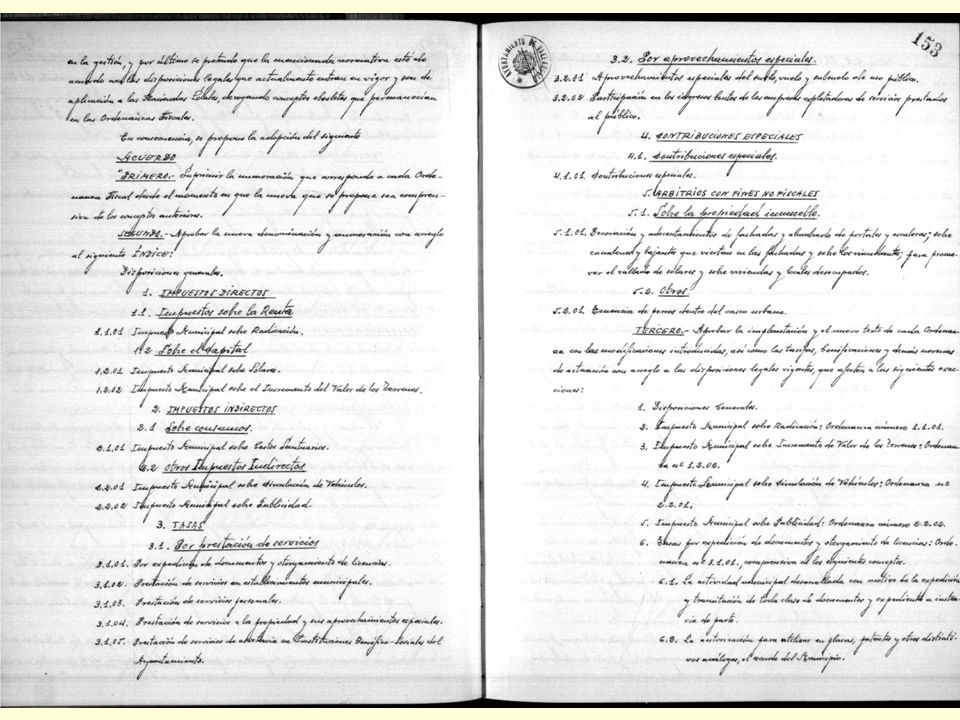 en la gestión, y por último se pretende que la mencionada normativa esté de
acuerdo con las disposiciones legales que actualmente entran en vigor y son de
aplicación a las Haciendas Locales, derogando conceptos obsoletos que permanecían
en las Ordenanzas Fiscales.
En consecuencia, se propone la adopción del siguiente
ACUERDO
"PRIMERO.- Suprimir la numeración que corresponde a cada Orde-
nanza Fiscal desde el momento en que la nueva que se propone sea compren-
siva de los conceptos anteriores.
SEGUNDO.- Aprobar la nueva denominación y numeración con arreglo
al siguiente ÍNDICE:
Disposiciones generales.
1. IMPUESTOS DIRECTOS
1.1. Impuestos sobre la Renta
1.1.01 Impuesto Municipal sobre Radicación.
1.2 Sobre el Capital
1.2.01 Impuesto Municipal sobre Solares.
1.2.02 Impuesto Municipal sobre el Incremento del Valor de los Terrenos.
2. IMPUESTOS INDIRECTOS
2.1 Sobre consumos.
2.1.01 Impuesto Municipal sobre Gastos Suntuarios.
2.2 Otros Impuestos Indirectos
2.2.01 Impuesto Municipal sobre Circulación de Vehículos.
2.2.02 Impuesto Municipal sobre Publicidad.
3. TASAS
3.1. Por prestación de servicios
3.1.01. Por expedición de documentos y otorgamiento de licencias.
3.1.02. Prestación de servicios en establecimientos municipales.
3.1.03. Prestación de servicios personales.
3.1.04. Prestación de servicios a la propiedad y sus aprovechamientos especiales.
3.1.05. Prestación de servicios de asistencia en Instituciones Benéfico-Sociales del
Ayuntamiento.
AYUNTAMIENTO DE
153
3.2. Por aprovechamientos especiales.
3.2.01 Aprovechamientos especiales del suelo, vuelo y subsuelo de uso público.
3.2.02 Participación en los ingresos brutos de las empresas explotadoras de servicios prestados
al público.
4. CONTRIBUCIONES ESPECIALES
4.1. Contribuciones especiales.
4.1.01 Contribuciones especiales.
5. ARBITRIOS CON FINES NO FISCALES
5.1. Sobre la propiedad inmueble.
5.1.01 Decoración y adecentamientos de fachadas y alumbrado de portales y escaleras; sobre
canalones y bajantes que viertan en las fachadas y sobre los viandantes; para promo-
ver el vallado de solares y sobre viviendas y locales desocupados.
5.2. Otros.
5.2.01 Tenencia de perros dentro del casco urbano.
TERCERO.- Aprobar la implantación y el nuevo texto de cada Ordenan-
za con las modificaciones introducidas, así como las tarifas, bonificaciones y demás normas
de actuación con arreglo a las disposiciones legales vigentes, que afecten a las siguientes exac-
ciones:
1. Disposiciones Generales.
2. Impuesto Municipal sobre Radicación: Ordenanza número 1.1.01.
3. Impuesto Municipal sobre Incremento de Valor de los Terrenos: Ordenan-
za nº 1.2.02.
4. Impuesto Municipal sobre Circulación de Vehículos: Ordenanza nº
2.2.01.
5. Impuesto Municipal sobre Publicidad: Ordenanza número 2.2.02.
6. Tasas por expedición de documentos y otorgamiento de licencias: Orde-
nanza nº 3.1.01, comprensiva de los siguientes conceptos.
6.1. La actividad municipal desarrollada con motivo de la expedición
y tramitación de toda clase de documentos y expedientes a instan-
cia de parte.
6.2. La autorización para utilizar en placas, patentes y otros distinti-
vos análogos, el escudo del Municipio.